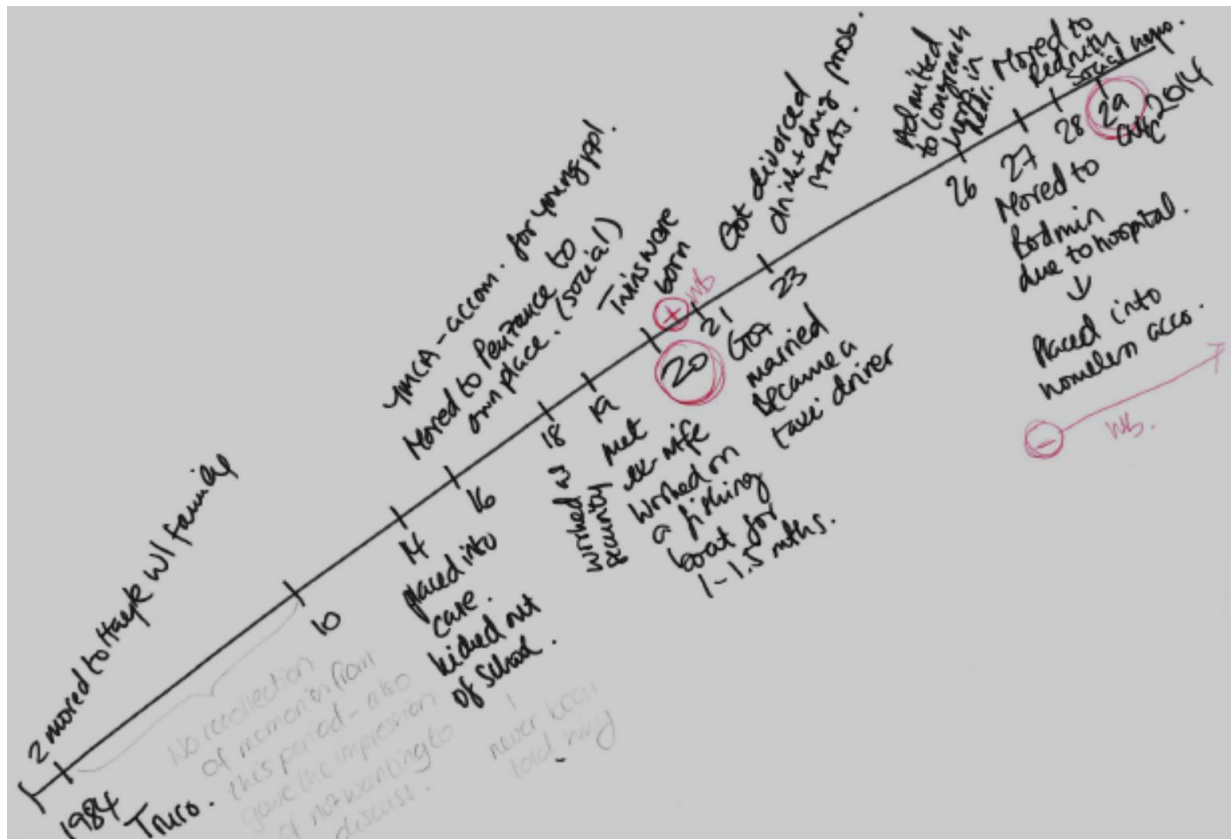 2 moved to Hayle w/ family
1984
Truro.
10
No recollection
of memories from
this period - also
gave the impression
of not wanting to
discuss.
14
placed into
care.
kicked out
of school.
never been
told why
16
YMCA - accom. for young ppl.
Moved to Penzance to
own place. (social)
18
worked as
security
19
met
ex-wife
worked on
a fishing
boat for
1-1.5 mths.
Twins were
born
+
wb
20
21
Got
married
became a
taxi driver
Got divorced
drink + drug prob.
starts.
23
Admitted
to Longreach
hosp. in
Redr.
26
27
Moved to
Bodmin
due to hospital.
↓
Placed into
homeless acco.
-
wb.
Moved to
Redruth
social
28
29
2014